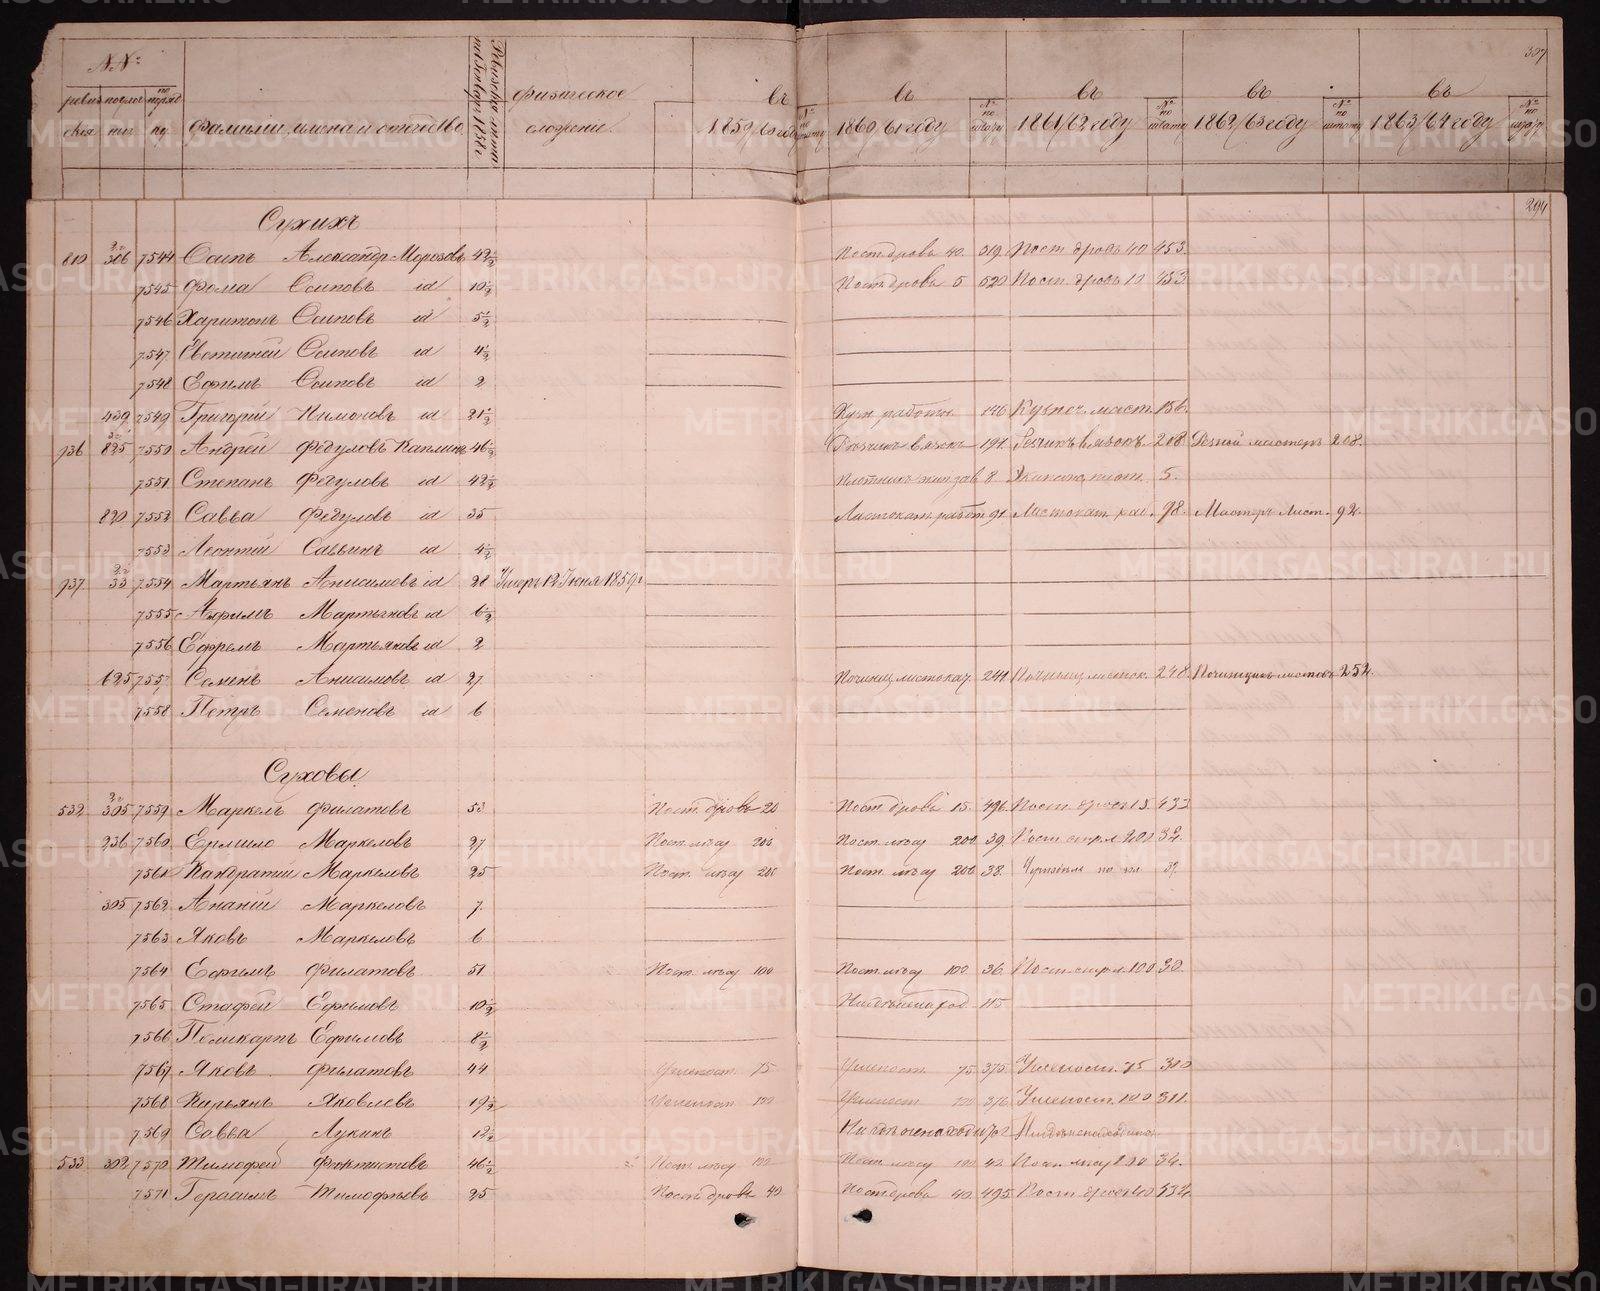 307
№№
ревиз посем по поряд
ския ные ку.
Фамилiи, имена и отчество
Ревизские лета
по 1 Генваря 1858 г
Физическое
сложенiе.
въ
1859/60 году
№ по штату
въ
1860/61 году
№ по штату
въ
1861/62 году
№ по штату
въ
1862/63 году
№ по штату
въ
1863/64 году
№ по штату
294
Сухихъ
810 306 7544 Осипъ Александр Морозовъ 42½ Пост. дровъ 40. 519. Пост. дровъ 40 453.
7545 Фома Осиповъ id 10½ Пост. дровъ 5 520 Пост. дровъ 10 453
7546 Харитонъ Осиповъ id 5½
7547 Евстигней Осиповъ id 4½
7548 Ефимъ Осиповъ id 2
439 7549 Григорiй Пимоновъ id 21½ Кузн. работн. 146 Кузнеч. маст. 156.
736 825 7550 Андрей Федуловъ Каплинъ 46½ 197. 208. Резной мастеръ 208.
7551 Степанъ Федуловъ id 42½ Плотникъ 8 5.
820 7552 Савва Федуловъ id 35 Листокат. работ. 91. Листокат. раб. 98. Мастеръ Лист. 92.
7553 Леонтiй Саввинъ id 4½
737. 33 7554 Мартьянъ Анисимовъ id 28 Умеръ 12 Iюня 1859 г
7555 Мартьяновъ id 6½
7556 Ефремъ Мартьяновъ id 2
625 7557 Семенъ Анисимовъ id 27 Починщ. листокат. 241 Починщ. листок. 248. Починщикъ листовъ 252.
7558 Петръ Семеновъ id 6
Суховы
532. 305 7559 Маркелъ Филатовъ 53 Пост. дровъ 20 Пост. дровъ 15. 496. Пост. дровъ 15 433
236 7560 Ермило Маркеловъ 27 Пост. лѣсу 200 Пост. лѣсу 200. 39. Пост. 200 32.
7561 Кандратiй Маркеловъ 25 Пост. лѣсу 200 Пост. лѣсу 200 38.
305 7562 Ананiй Маркеловъ 7.
7563 Яковъ Маркеловъ 6
7564 Ефимъ Филатовъ 51 Пост. лѣсу 100 Пост. лѣсу 100. 36. Пост. 100 30.
7565 Стафей Ефимовъ 10½ 115
7566 Поликарпъ Ефимовъ 8½
7567 Яковъ Филатовъ 44 Углепост. 75 Углепост. 75 375 Углепост. 75 310
7568 Кирьянъ Яковлевъ 19½ Углепост. 100 Углепост. 100 376 Углепост. 100 311.
7569 Савва Лукинъ 12½
533 302 7570 Тимофей Фиктистовъ 46½ Пост. лѣсу 100 Пост. лѣсу 100 42 Пост. лѣсу 34.
7571 Герасимъ Тимофѣевъ 25 Пост. дровъ 40 Пост. дровъ 40. 495. Пост. дровъ 40 432.
METRIKI.GASO-URAL.RU